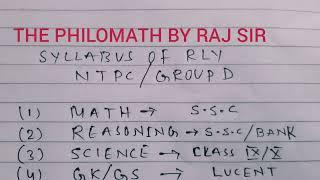 THE PHILOMATH BY RAJ SIR
SYLLABUS OF RLY
NTPC/GROUP D
(1) MATH → S.S.C
(2) REASONING → S.S.C/BANK
(3) SCIENCE → CLASS IX/X
(4) GK/GS → LUCENT